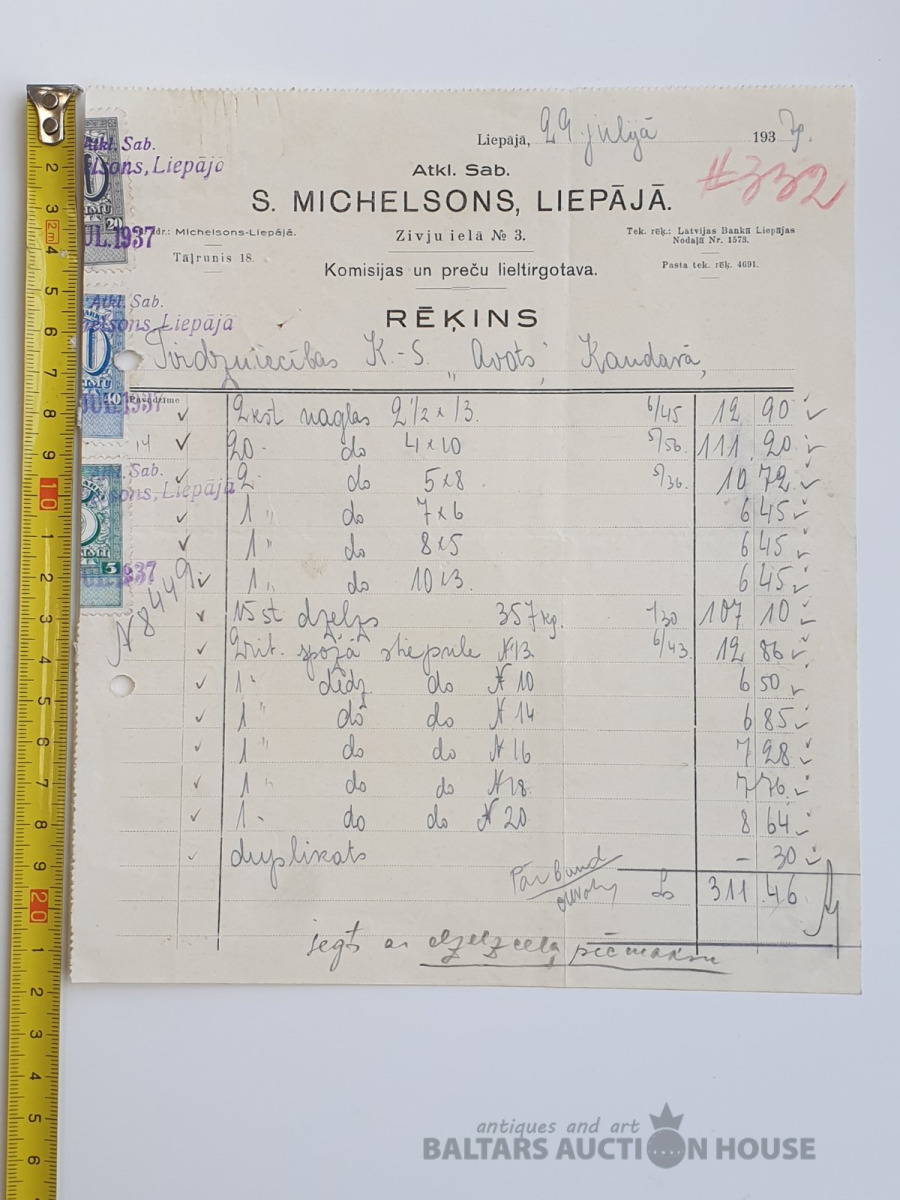 Liepājā, 29 jūlijā 1937 g.
#332
Atkl. Sab.
S. MICHELSONS, LIEPĀJĀ.
dr.: Michelsons-Liepājā.
Tāļrunis 18.
Zivju ielā № 3.
Tek. rēķ.: Latvijas Bankā Liepājas
Nodaļā Nr. 1573.
Pasta tek. rēķ. 4691.
Komisijas un preču lieltirgotava.
RĒĶINS
Atkl. Sab.
elsons, Liepājā
20
UL.1937
Atkl. Sab.
elsons, Liepājā
40
1937
Atkl. Sab.
elsons, Liepājā
5
1937
Tirdzniecības K.-S. „Avots", Kandavā,
Pavadzīme
2 kst naglas 2½ x 13. 6/45 12 90
20 - do 4x10 5/56. 111.20
2. do 5x8 5/36. 10 72
1 " do 7x6 6 45
1 " do 8x5 6 45
1 " do 10x3. 6 45
N 8449
15 st dzelzs 357 kg. -/30 107 10
2 rit. spožā stiepule N 13 6/43. 12 86
1 " dīdz do N 10 6 50
1 " do do N 14 6 85
1 " do do N 16 7 28
1 " do do N 18 7 76
1 - do do N 20 8 64
duplikats - 30
Ls 311.46
segts ar dzelzceļa pēcmaksu
antiques and art
BALTARS AUCTION HOUSE